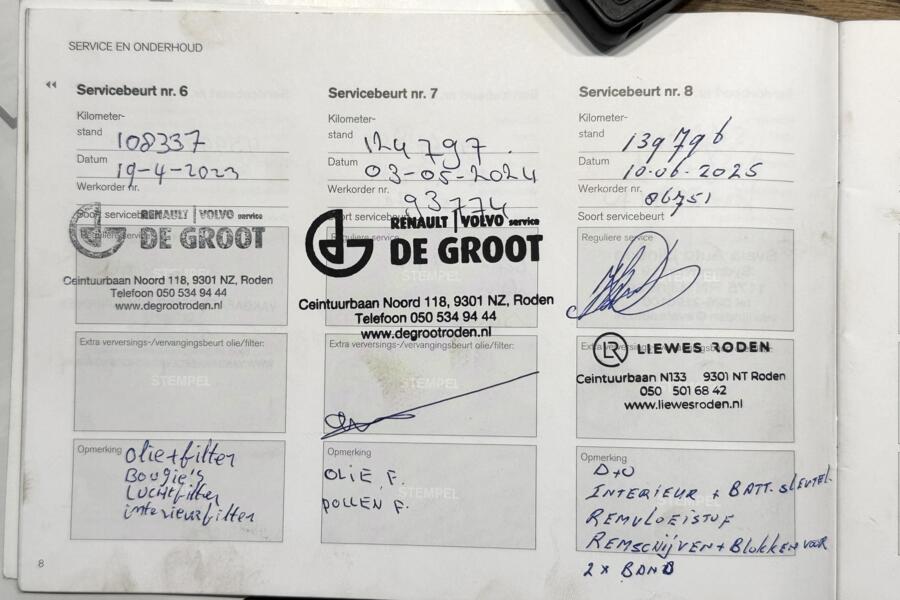 SERVICE EN ONDERHOUD
Servicebeurt nr. 6
Kilometer-
stand 108337
Datum 19-4-2023
Werkorder nr.
Soort servicebeurt
Reguliere service
RENAULT | VOLVO service
DE GROOT
Ceintuurbaan Noord 118, 9301 NZ, Roden
Telefoon 050 534 94 44
www.degrootroden.nl
Extra verversings-/vervangingsbeurt olie/filter:
STEMPEL
Opmerking olie+filter
Bougie's
Luchtfilter
interieurfilter
Servicebeurt nr. 7
Kilometer-
stand 124797.
Datum 03-05-2024
Werkorder nr. 93774
Soort servicebeurt
Reguliere service
RENAULT | VOLVO service
DE GROOT
STEMPEL
Ceintuurbaan Noord 118, 9301 NZ, Roden
Telefoon 050 534 94 44
www.degrootroden.nl
Extra verversings-/vervangingsbeurt olie/filter:
STEMPEL
Opmerking
OLIE F.
STEMPEL
POLLEN F.
Servicebeurt nr. 8
Kilometer-
stand 139796
Datum 10-06-2025
Werkorder nr. 86751
Soort servicebeurt
Reguliere service
STEMPEL
Extra verversings-/vervangingsbeurt olie/filter:
LR LIEWES RODEN
Ceintuurbaan N133 9301 NT Roden
050 501 68 42
www.liewesroden.nl
Opmerking
D+O
INTERIEUR + BATT. SLEUTEL.
REMVLOEISTOF
REMSCHIJVEN + BLOKKEN VOOR
2 x BAND
8